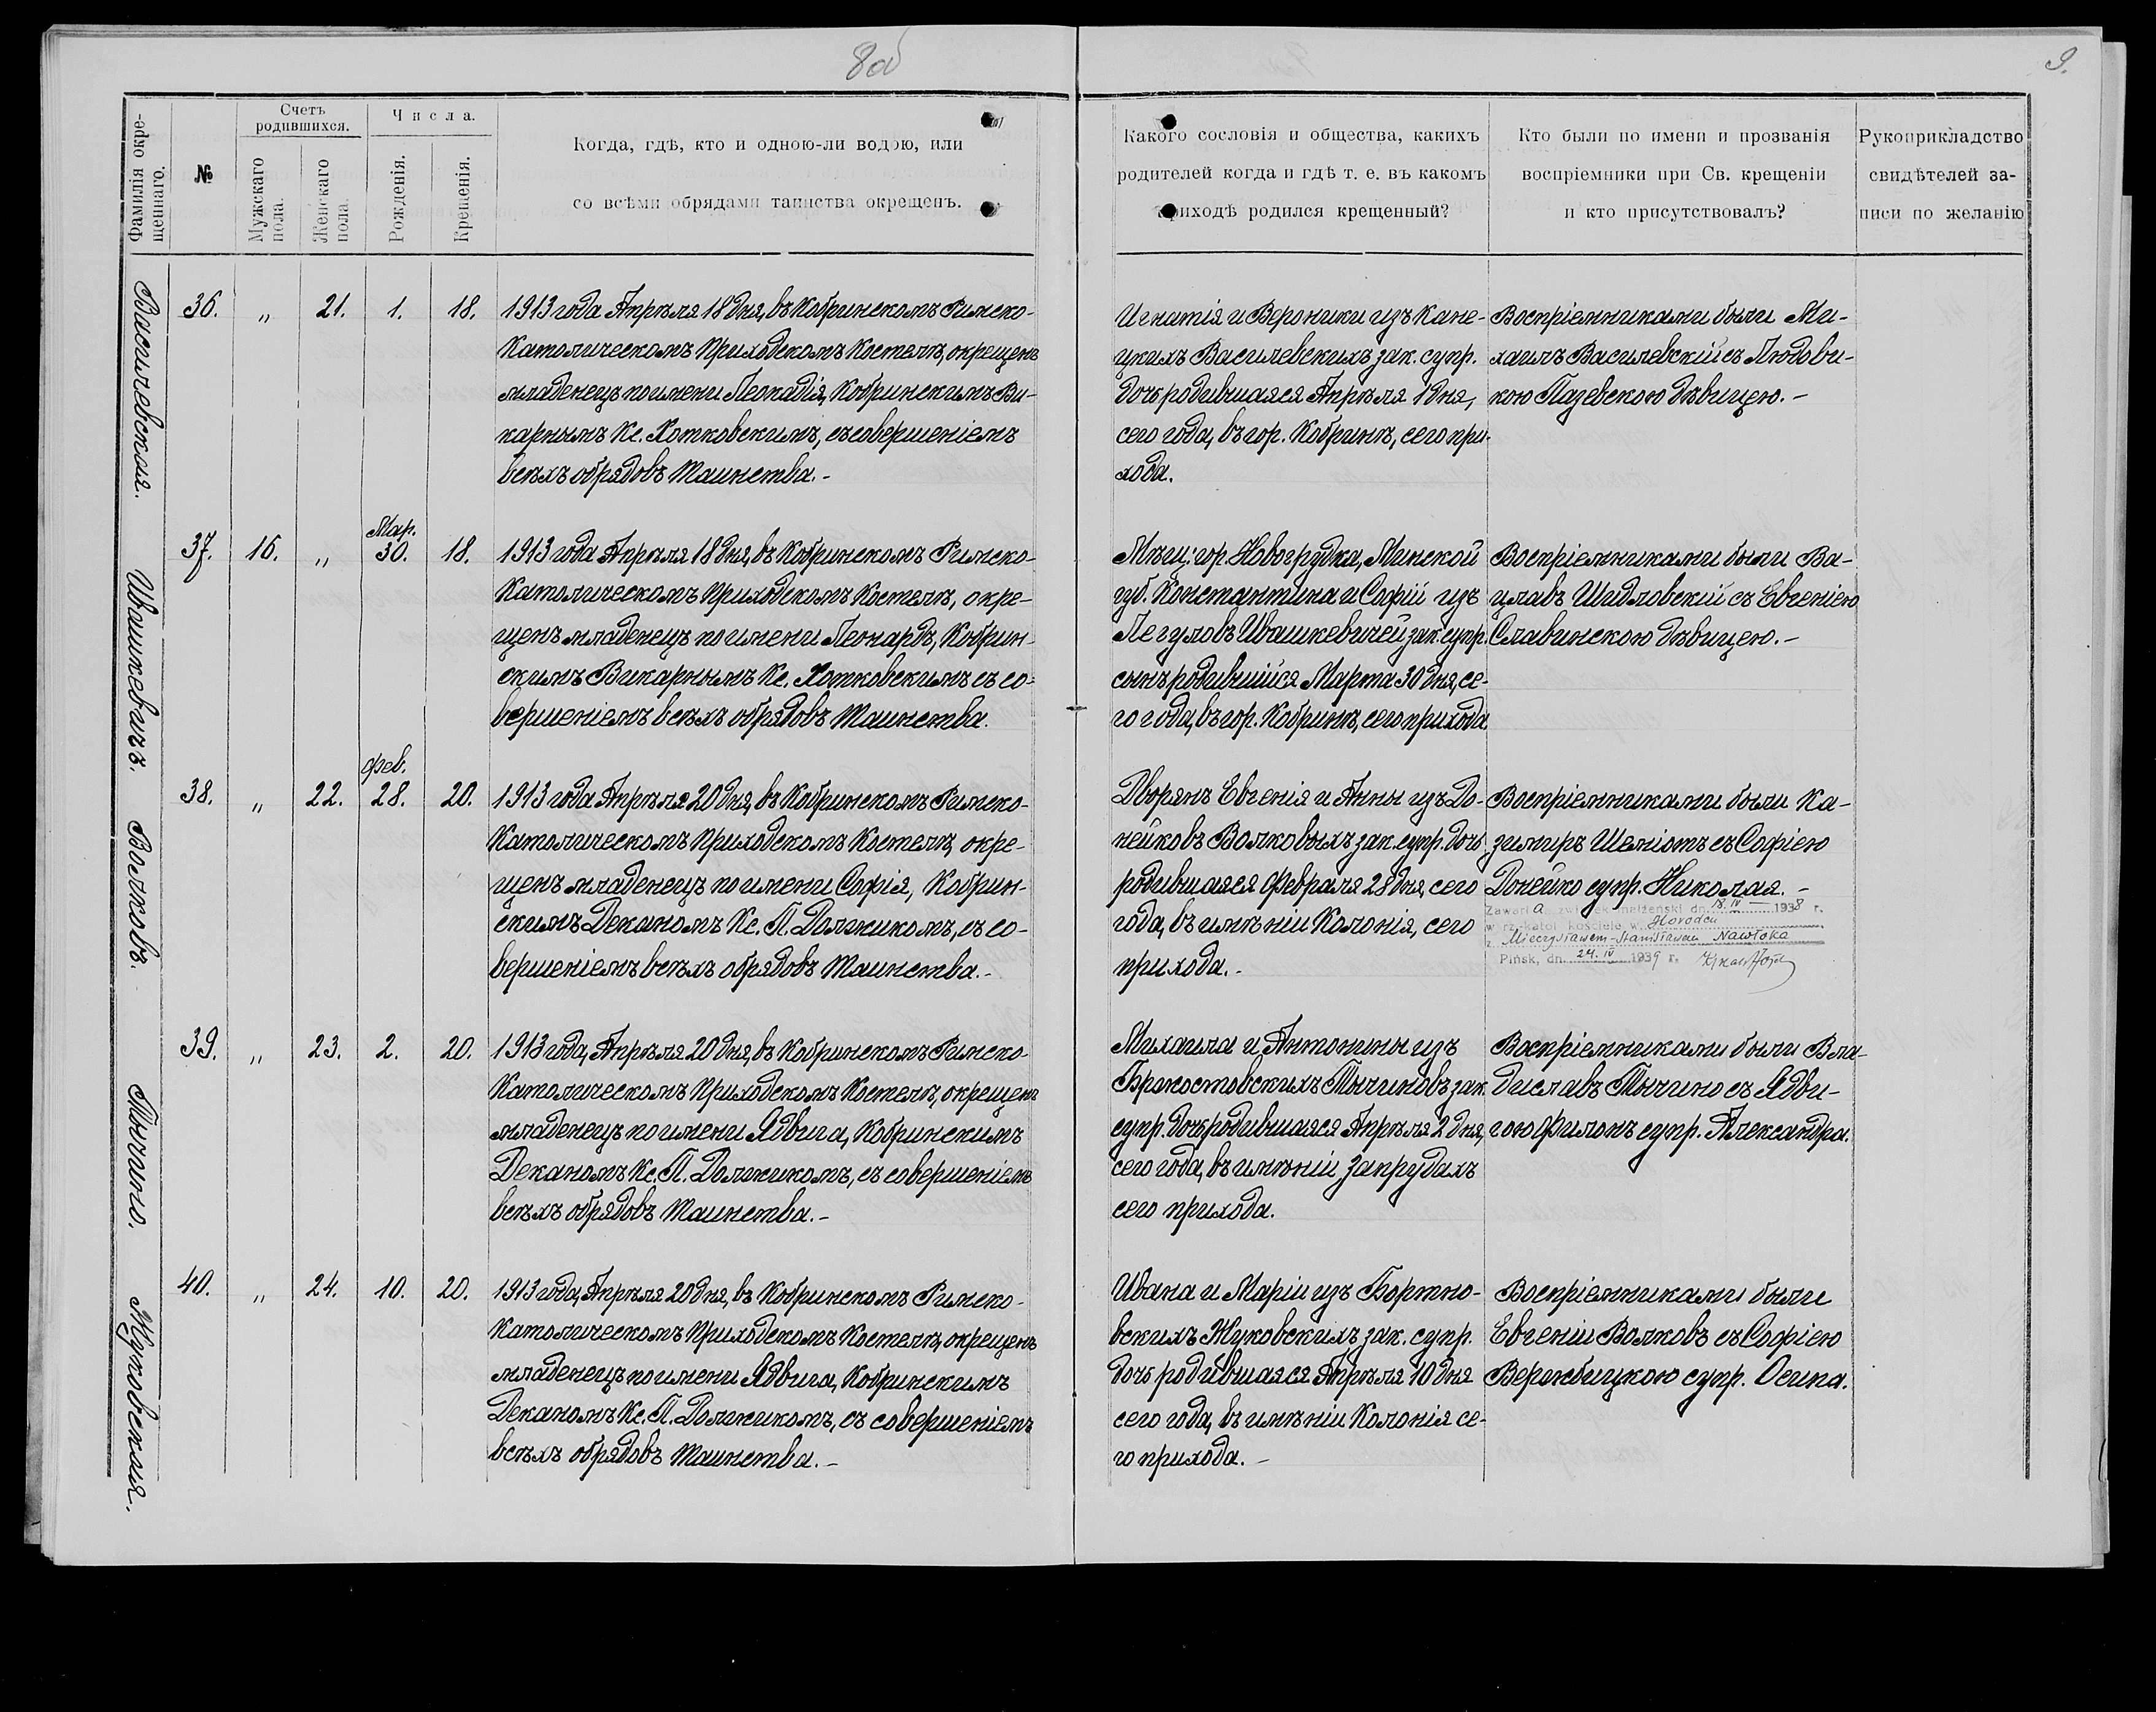 8об
9.
Фамилія окре-
щеннаго.
№
Счетъ
родившихся.
Мужскаго
пола.
Женскаго
пола.
Числа.
Рожденія.
Крещенія.
Когда, гдѣ, кто и одною-ли водою, или
со всѣми обрядами таинства окрещенъ.
Какого сословія и общества, какихъ
родителей когда и гдѣ т. е. въ какомъ
приходѣ родился крещенный?
Кто были по имени и прозванія
воспріемники при Св. крещеніи
и кто присутствовалъ?
Рукоприкладство
свидѣтелей за-
писи по желанію
Василевская.
36. " 21. 1. 18.
1913 года Апрѣля 18 дня, въ Кобринскомъ Римско-
Католическомъ Приходскомъ Костелѣ, окрещенъ
младенецъ по имени Леокадія, Кобринскимъ Ви-
карнымъ Кс. Хотковскимъ, съ совершеніемъ
всѣхъ обрядовъ Таинства.-
Игнатія и Вероники изъ Кане-
цкихъ Василевскихъ зак. супр.
дочь родившаяся Апрѣля 1 дня,
сего года, въ гор. Кобринѣ, сего при-
хода.
Воспріемниками были Ми-
хаилъ Василевскій съ Людови-
кою Пазевскою дѣвицею.-
Ивашкевичъ.
37. 16. " Мар. 30. 18.
1913 года Апрѣля 18 дня, въ Кобринскомъ Римско-
Католическомъ Приходскомъ Костелѣ, окре-
щенъ младенецъ по имени Леонардъ, Кобрин-
скимъ Викарнымъ Кс. Хотковскимъ съ со-
вершеніемъ всѣхъ обрядовъ Таинства.
Мѣщ. гор. Новогрудка, Минской
губ. Константина и Софіи изъ
Легуловъ Ивашкевичей зак. супр.
сынъ родившійся Марта 30 дня, се-
го года, въ гор. Кобринѣ, сего прихода.
Воспріемниками были Ва-
цлавъ Шидловскій съ Евгеніею
Славинскою дѣвицею.-
Волковъ.
38. " 22. Фев. 28. 20.
1913 года Апрѣля 20 дня, въ Кобринскомъ Римско-
Католическомъ Приходскомъ Костелѣ, окре-
щенъ младенецъ по имени Софія, Кобрин-
скимъ Деканомъ Кс. П. Должикомъ, съ со-
вершеніемъ всѣхъ обрядовъ Таинства.-
Дворянъ Евгенія и Анны изъ До-
нейковъ Волковыхъ зак. супр. дочь
родившаяся Февраля 28 дня, сего
года, въ имѣніи Колонія, сего
прихода.-
Воспріемниками были Ка-
зимиръ Шеміотъ съ Софіею
Донейко супр. Николая.-
Zawarła związek małżeński dn. 18.IV 1938 r.
w rz.-katol. kościele w Horodcu
z Mieczysławem-Stanisławem Nawłoka
Pińsk, dn. 24.IV 1939 r.
Тычино.
39. " 23. 2. 20.
1913 года, Апрѣля 20 дня, въ Кобринскомъ Римско-
Католическомъ Приходскомъ Костелѣ, окрещенъ
младенецъ по имени Ядвига, Кобринскимъ
Деканомъ Кс. П. Должикомъ, съ совершеніемъ
всѣхъ обрядовъ Таинства.-
Михаила и Антонины изъ
Бржостовскихъ Тычиновъ зак.
супр. дочь родившаяся Апрѣля 2 дня,
сего года, въ имѣніи Запрудахъ
сего прихода.
Воспріемниками были Вла-
диславъ Тычино съ Ядви-
гою Филонъ супр. Александра.
Жуковская.
40. " 24. 10. 20.
1913 года, Апрѣля 20 дня, въ Кобринскомъ Римско-
Католическомъ Приходскомъ Костелѣ, окрещенъ
младенецъ по имени Ядвига, Кобринскимъ
Деканомъ Кс. П. Должикомъ, съ совершеніемъ
всѣхъ обрядовъ Таинства.-
Ивана и Маріи изъ Бортно-
вскихъ Жуковскихъ зак. супр.
дочь родившаяся Апрѣля 10 дня
сего года, въ имѣніи Колонія се-
го прихода.-
Воспріемниками были
Евгеній Волковъ съ Софіею
Вержбицкою супр. Осипа.